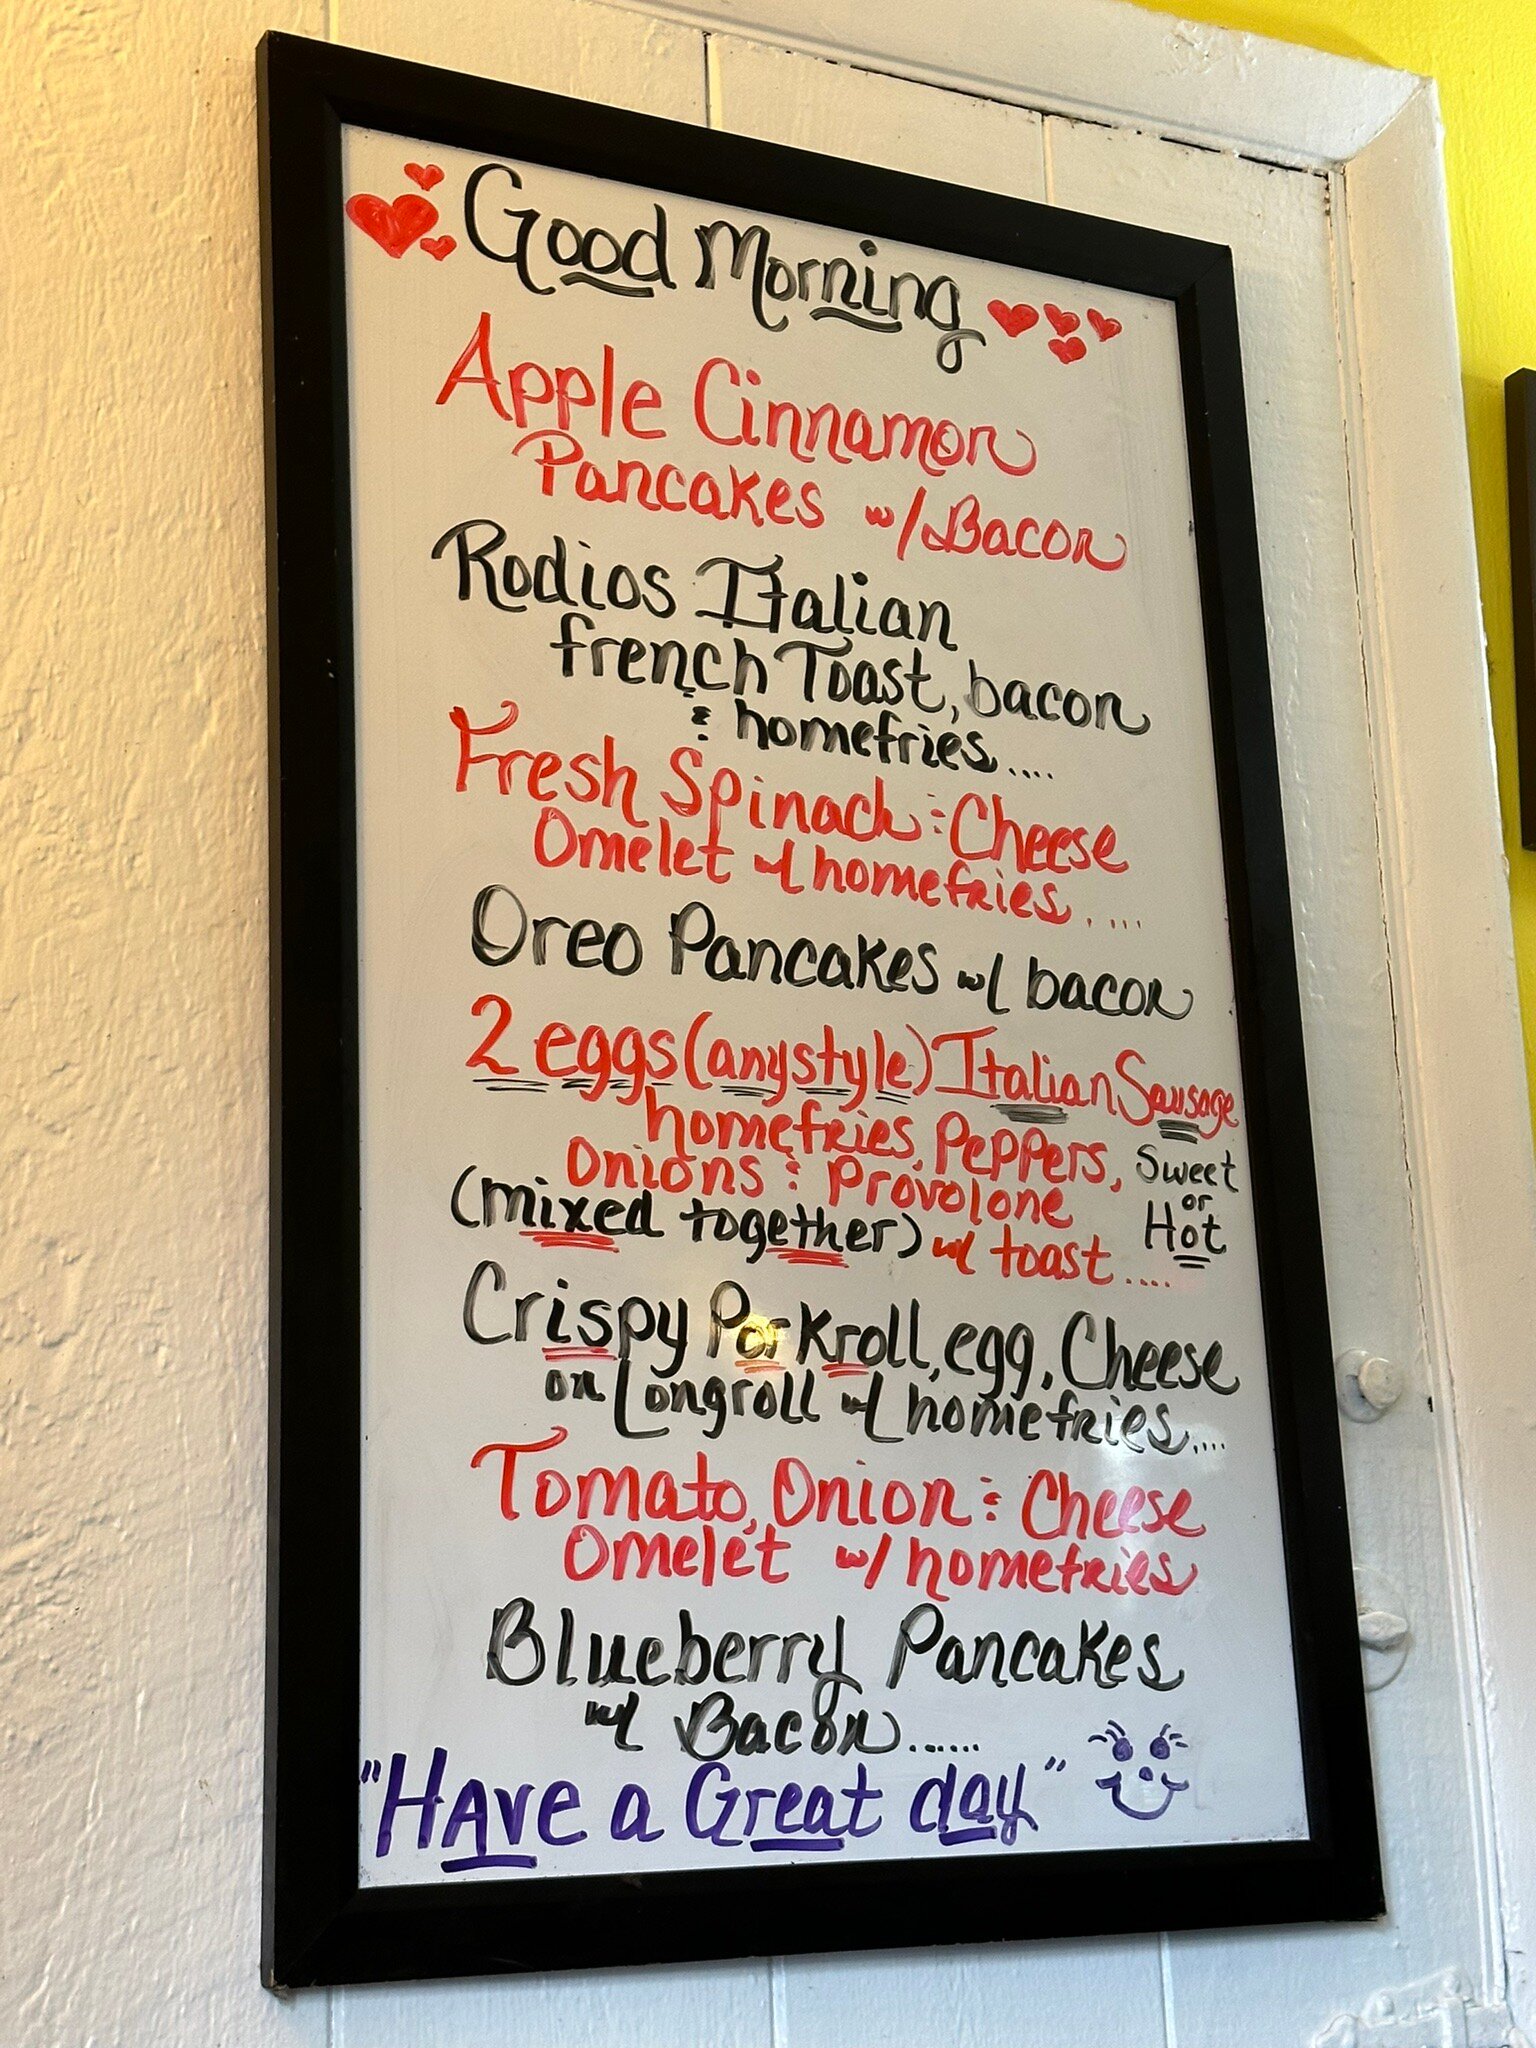 Good Morning
Apple Cinnamon
Pancakes w/Bacon
Rodios Italian
french Toast, bacon
& homefries....
Fresh Spinach & Cheese
Omelet w/ homefries.....
Oreo Pancakes w/ bacon
2 eggs (anystyle) Italian Sausage
homefries, Peppers,
Sweet
Onions & Provolone
or
(mixed together) w/ toast....
Hot
Crispy Porkroll, egg, Cheese
on Longroll w/ homefries....
Tomato, Onion & Cheese
Omelet w/ homefries
Blueberry Pancakes
w/ Bacon......
"Have a Great day"